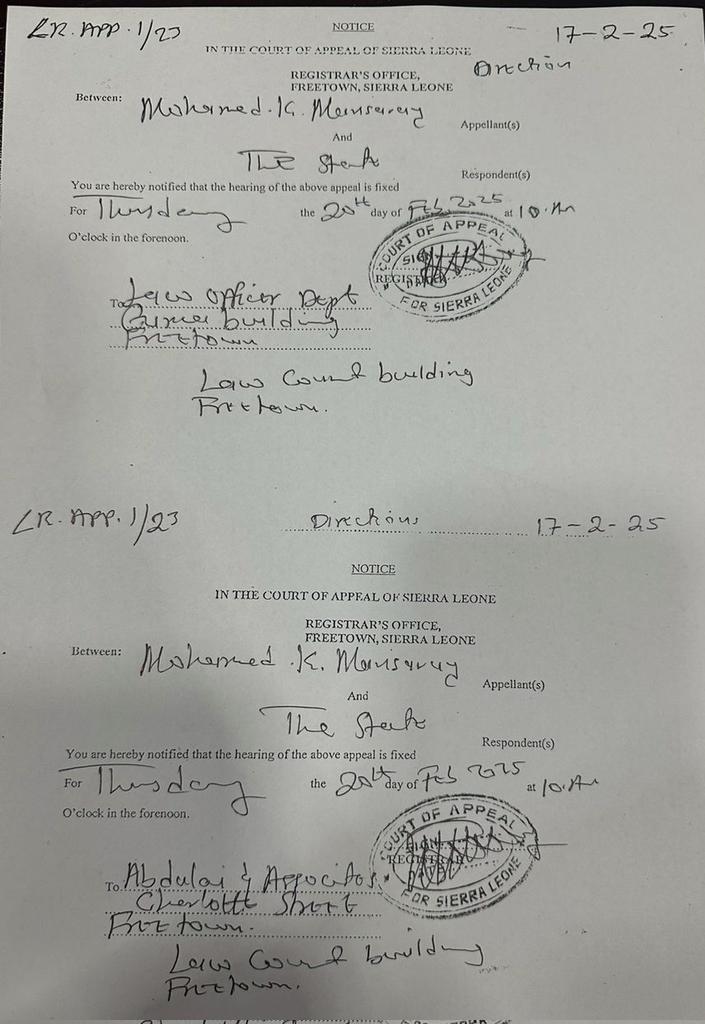 CR. APP. 1/23
NOTICE
17-2-25
IN THE COURT OF APPEAL OF SIERRA LEONE
Direction
REGISTRAR'S OFFICE,
FREETOWN, SIERRA LEONE
Between: Mohamed .K. Mansaray
Appellant(s)
And
The State
Respondent(s)
You are hereby notified that the hearing of the above appeal is fixed
For Thusday the 20th day of Feb 2025 at 10.Am
O'clock in the forenoon.
COURT OF APPEAL
SIGN
REGISTRAR
FOR SIERRA LEONE
To Law Officer Dept
Guma building
Freetown
Law Court building
Freetown.
CR. APP. 1/23
Directions
17-2-25
NOTICE
IN THE COURT OF APPEAL OF SIERRA LEONE
REGISTRAR'S OFFICE,
FREETOWN, SIERRA LEONE
Between: Mohamed .K. Mansaray
Appellant(s)
And
The State
Respondent(s)
You are hereby notified that the hearing of the above appeal is fixed
For Thusday the 20th day of Feb 2025 at 10.Am
O'clock in the forenoon.
COURT OF APPEAL
SIGN
REGISTRAR
FOR SIERRA LEONE
To Abdulai & Associates
Charlotte Street
Freetown.
Law Court building
Freetown.